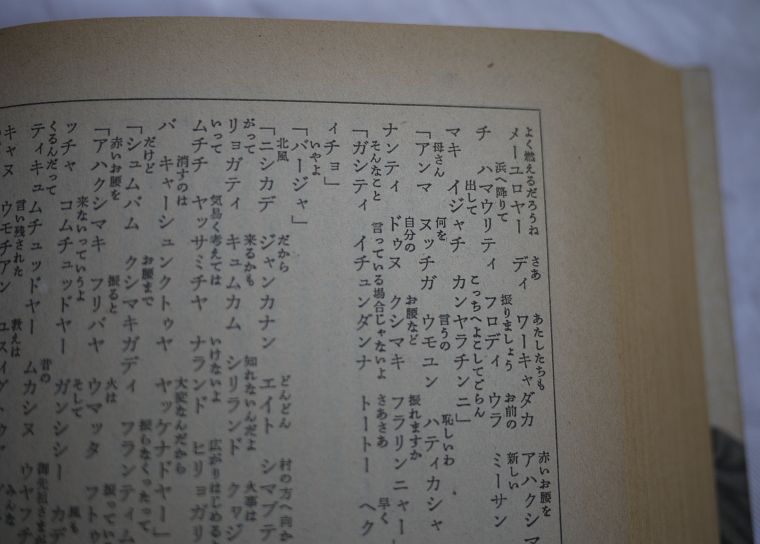 よく燃えるだろうね さあ あたしたちも 赤いお腰を
メーユロヤー ディ ワーキャダカ アハクシマ
浜へ降りて 振りましょう お前の 新しい
チ ハマウリティ フロディ ウラ ミーサン
出して こっちへよこしてごらん
マキ イジャチ カンヤラチンニ」
母さん 何を 言うの 恥しいわ
「アンマ ヌッチガ ウモユン ハティカシャ
そんなこと 自分の お腰など 振れますか
ナンティ ドゥヌ クシマキ フラリンニャー
言っている場合じゃないよ さあさあ 早く
「ガシティ イチュンダンナ トートー ヘク
ィチョ」
いやよ
「バージャ」
北風 だから どんどん 村の方へ向か
「ニシカデ ジャンカナン エイト シマブテ
がって 来るかも 知れないんだよ 火事は
リョガティ キュムカム シリランド クヮジ
いって 気易く考えては いけないよ 広がりはじめる
ムチチ ヤッサミチヤ ナランド ヒリョガリ
消すのは 大変なんだから
バ キャーシュンクトゥヤ ヤッケナドヤー」
だけど お腰まで 振らなくったって
「シュムバム クシマキガディ フランティム
赤いお腰を 振ると 火は 振ってい
「アハクシマキ フリバヤ ウマッタ フトゥ
来ないっていうよ そして 風も
ッチャ コムチュッドヤー ガンシシー カデ
くるんだって 昔の 御先祖さまが
ティキュムチュッドヤー ムカシヌ ウヤフヂ
言い残された 教えは みんな
キャヌ ウモチアン